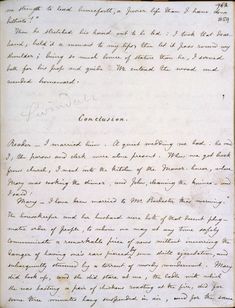 me strength to lead henceforth a purer life than I have done
hitherto!"
Then he stretched his hand out to be led. I took that dear
hand, held it a moment to my lips, then let it pass round my
shoulder; being so much lower of stature than he, I served
both for his prop and guide. We entered the wood and
wended homeward.
Conclusion.
Reader – I married him. A quiet wedding we had: he and
I, the parson and clerk were alone present. When we got back
from church, I went into the kitchen of the Manor-house, where
Mary was cooking the dinner, and John, cleaning the knives, and
I said:
"Mary – I have been married to Mr Rochester this morning."
The housekeeper and her husband were both of that decent phleg-
matic order of people, to whom one may at any time safely
communicate a remarkable piece of news without incurring the
danger of having one's ears pierced by some shrill ejaculation, and
subsequently stunned by a torrent of wordy wonderment. Mary
did look up, and she did stare at me; the ladle with which
she was basting a pair of chickens roasting at the fire, did for
some three minutes hang suspended in air, and for the same